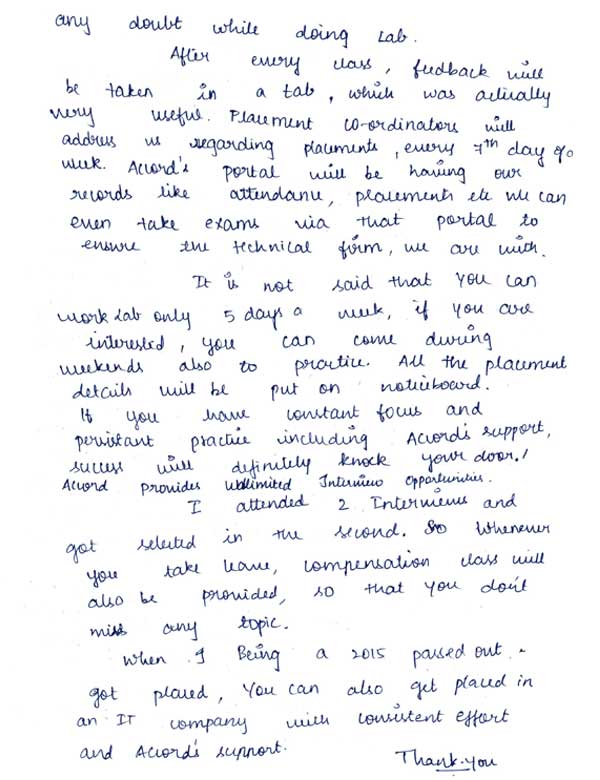 any doubt while doing Lab.
After every class, feedback will
be taken in a tab, which was actually
very useful. Placement co-ordinators will
address us regarding placements, every 7th day of
week. Accord's portal will be having our
records like attendance, placements etc we can
even take exams via that portal to
ensure the technical firm, we are with.
It is not said that you can
work Lab only 5 days a week, if you are
interested, you can come during
weekends also to practice. All the placement
details will be put on noticeboard.
If you have constant focus and
persistant practice including Accord's support,
success will definitely knock your door.!
Accord Provides Unlimited Interview Opportunities.
I attended 2 Interviews and
got selected in the second. So Whenever
you take leave, compensation class will
also be provided, so that you don't
miss any topic.
When I Being a 2015 passed out
got placed, You can also get placed in
an IT company with consistent effort
and Accord's support.
Thank.you